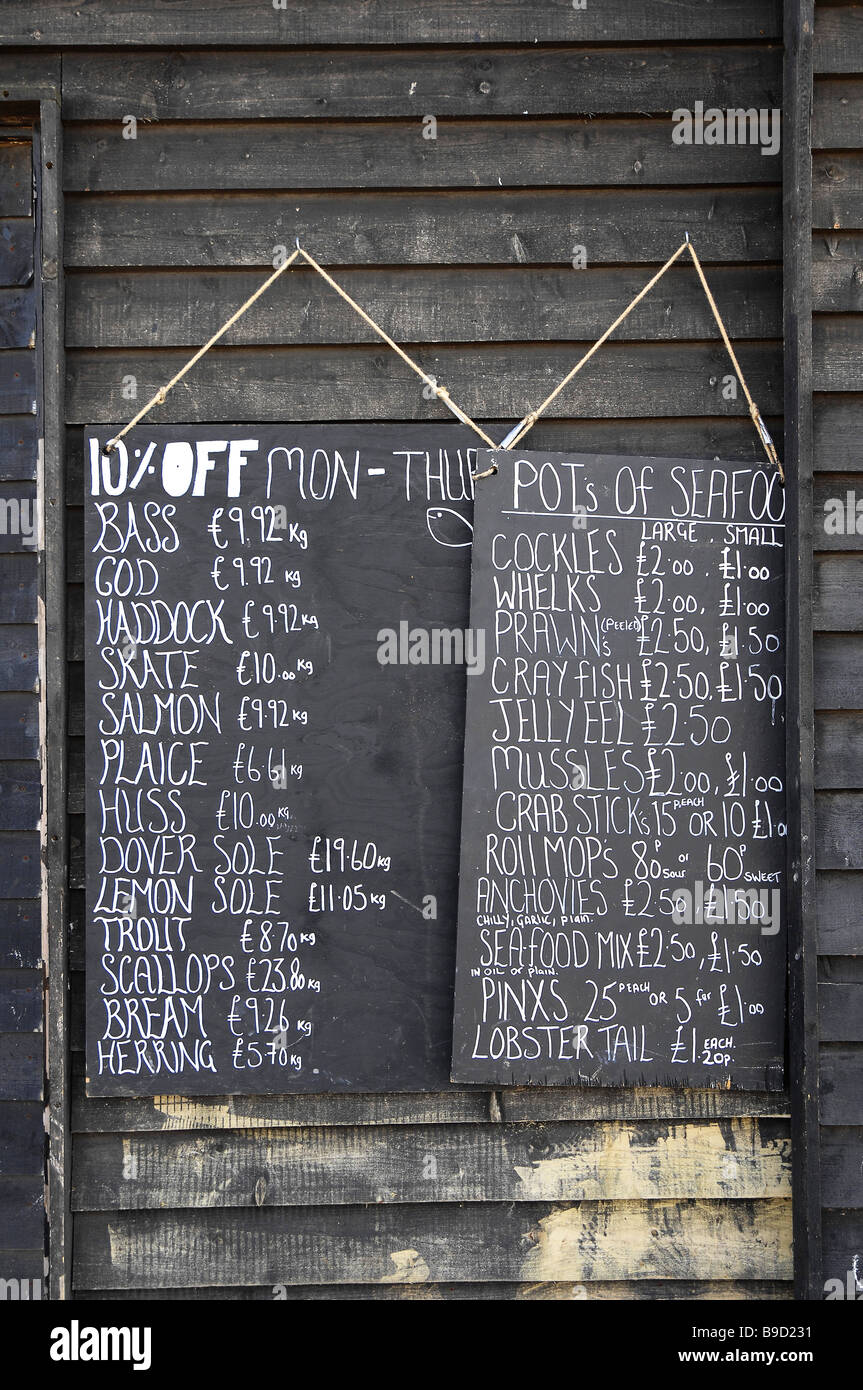 10% OFF MON - THUR
BASS £9.92 Kg
GOD £9.92 Kg
HADDOCK £9.92 Kg
SKATE £10.00 Kg
SALMON £9.92 Kg
PLAICE £6.61 Kg
HUSS £10.00 Kg
DOVER SOLE £19.60 Kg
LEMON SOLE £11.05 Kg
TROUT £8.70 Kg
SCALLOPS £23.80 Kg
BREAM £9.26 Kg
HERRING £5.70 Kg
POT's OF SEAFOO
LARGE . SMALL
COCKLES £2.00 . £1.00
WHELKS £2.00, £1.00
PRAWN's (PEELED) £2.50, £1.50
CRAYFISH £2.50, £1.50
JELLY EEL £2.50
MUSSLES £2.00, £1.00
CRAB STICK's 15P EACH OR 10 £1.0
ROLLMOP's 80P SOUR or 60P SWEET
ANCHOVIES £2.50, £1.50
CHILLY, GARLIC, Plain.
SEA-FOOD MIX £2.50, £1.50
IN OIL OR Plain.
PINXS 25P EACH OR 5 for £1.00
LOBSTER TAIL £1.20p. EACH.
a alamy stock photo
B9D231
www.alamy.com